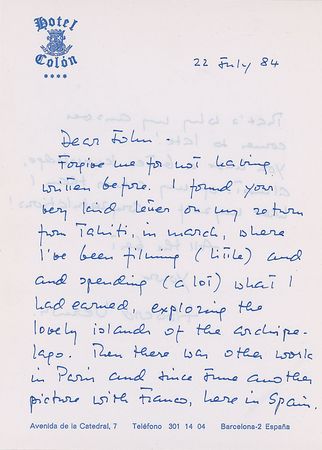 Hotel
Colón
22 July 84
Dear John -
Forgive me for not having
written before. I found your
very kind letter on my return
from Tahiti, in march, where
I've been filming (little) and
and spending (a lot) what I
had earned, exploring the
lovely islands of the archipe-
lago. Then there was other work
in Paris and since June another
picture with Franco, here in Spain.
Avenida de la Catedral, 7 Teléfono 301 14 04 Barcelona-2 España